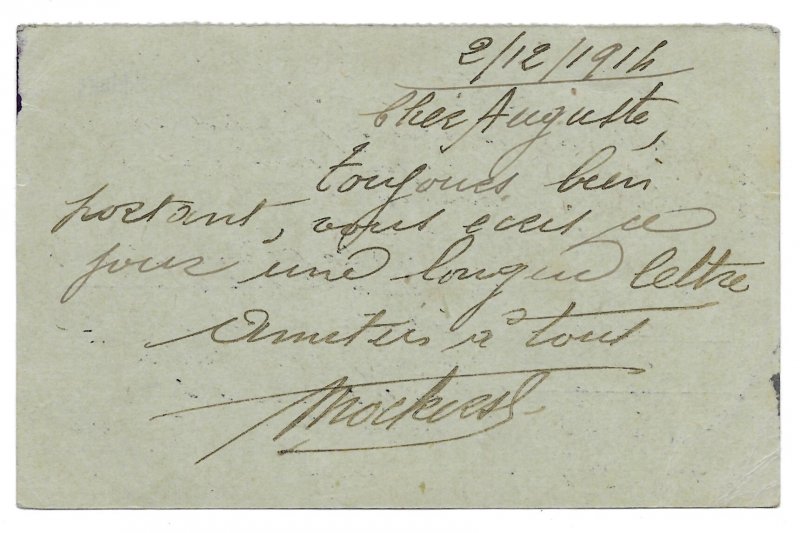 2/12/1914
Cher Auguste,
toujours bien
portant, vous écris ce
jour une longue lettre
Amitiés à tous